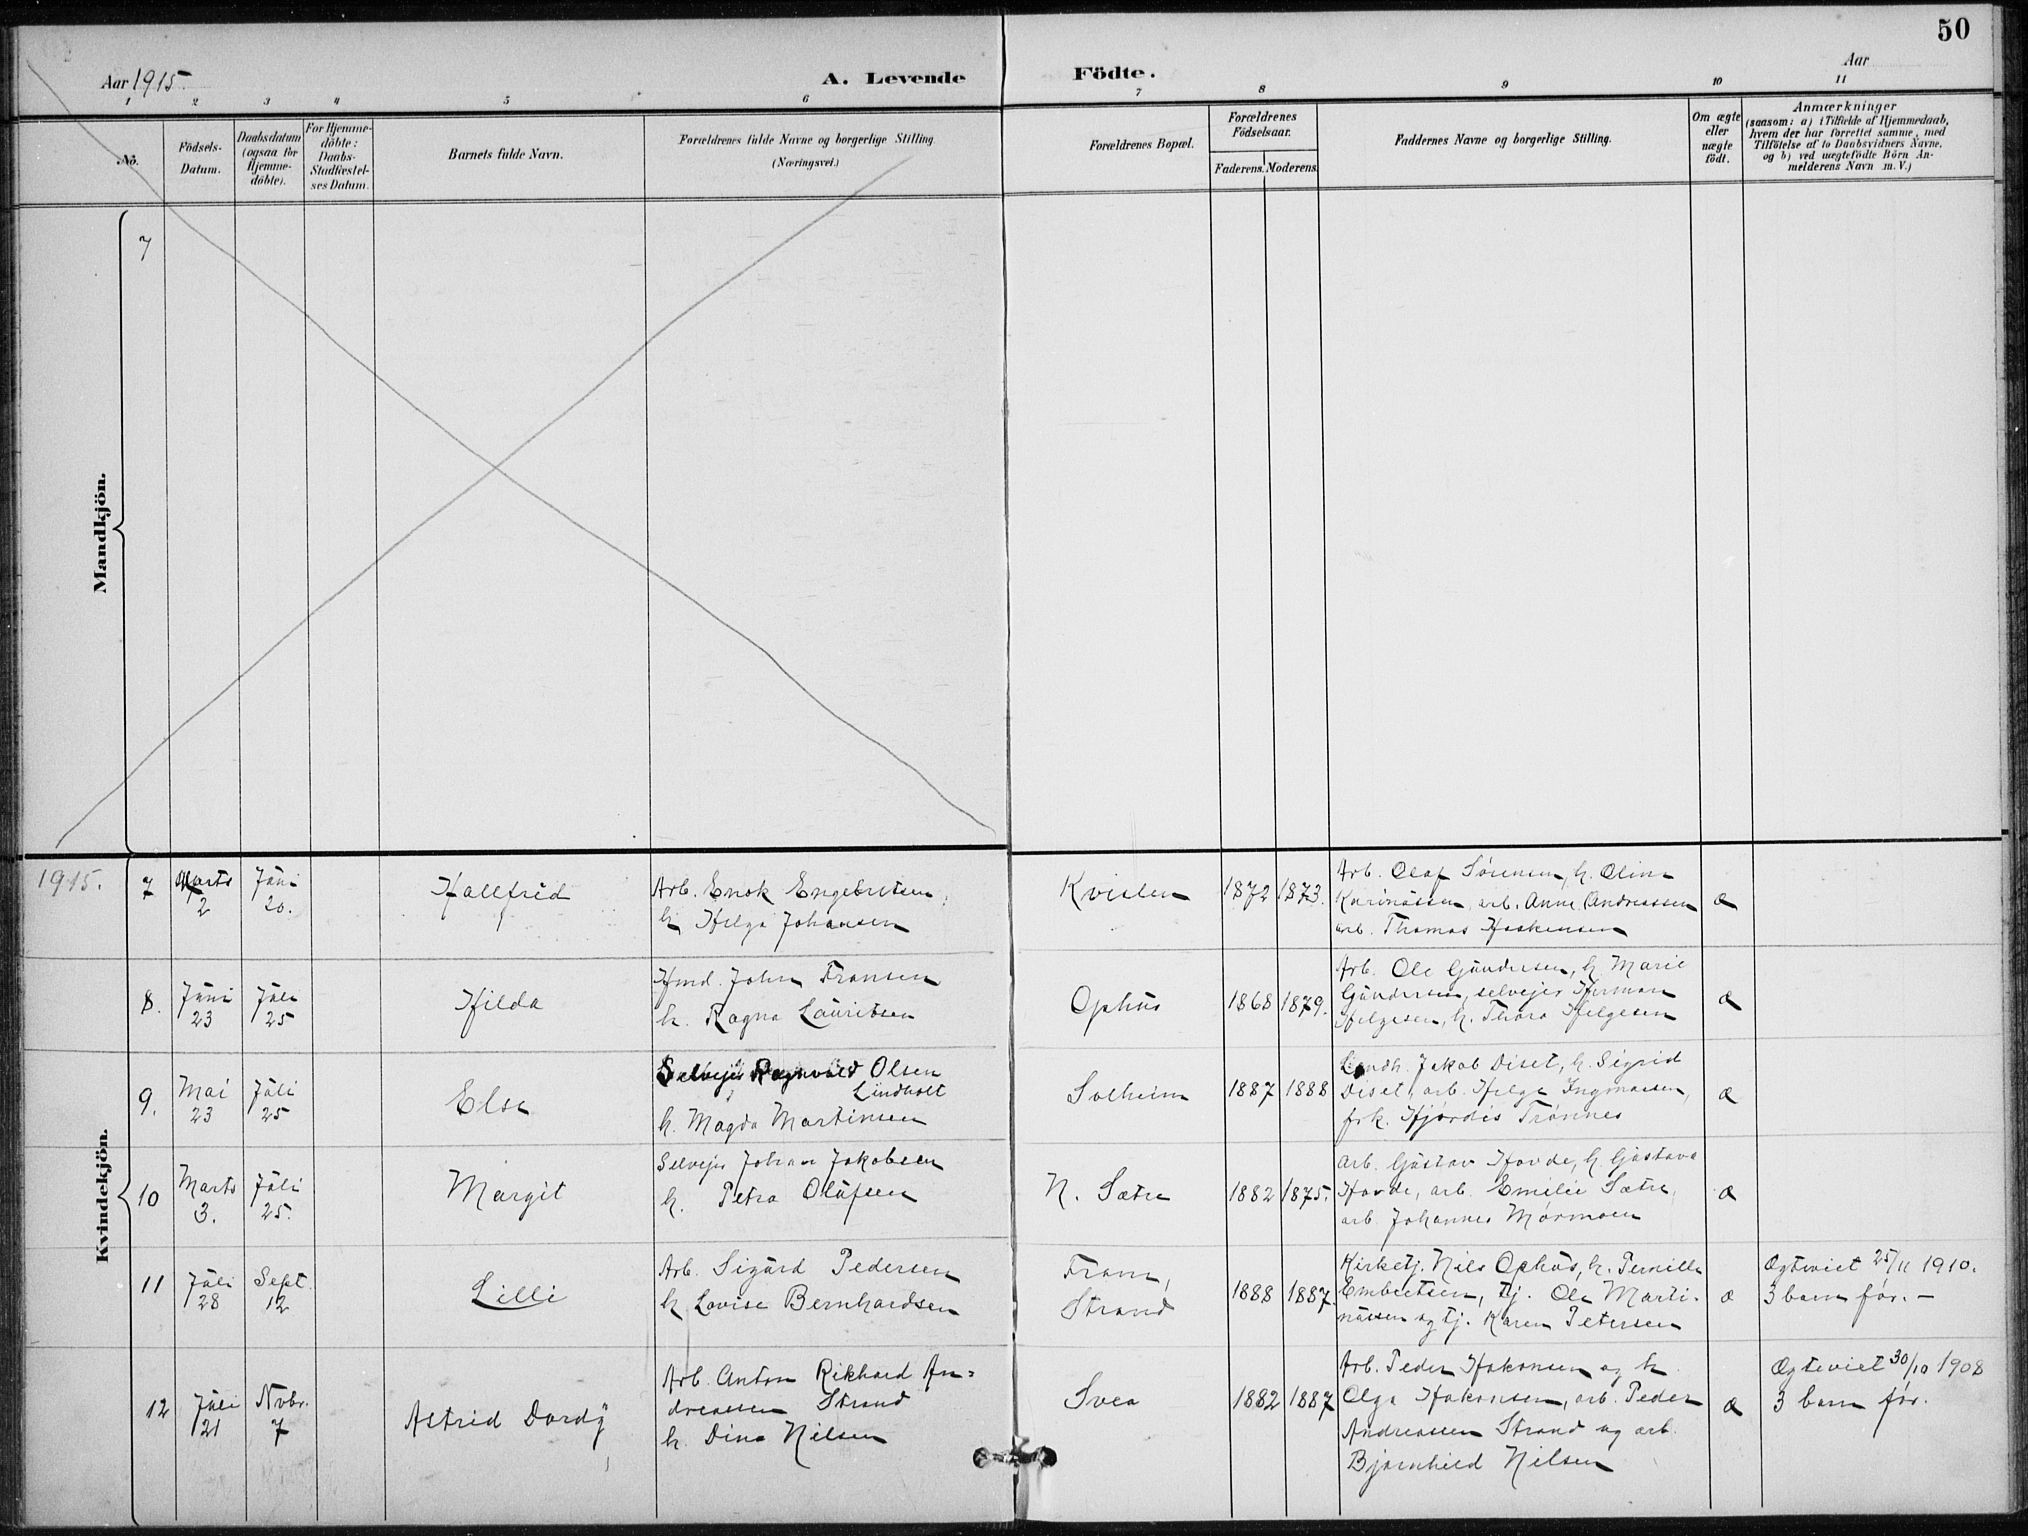 50
Aar 1915.
A. Levende Födte.
Aar
1 2 3 4 5 6 7 8 9 10 11
No.
Födsels-
Datum.
Daabsdatum
(ogsaa for
Hjemme-
döbte).
For Hjemme-
döbte:
Daabs-
Stadfæstel-
ses Datum.
Barnets fulde Navn.
Forældrenes fulde Navne og borgerlige Stilling
(Næringsvei.)
Forældrenes Bopæl.
Forældrenes
Födselsaar.
Faderens. Moderens.
Faddernes Navne og borgerlige Stilling.
Om ægte
eller
uægte
födt.
Anmærkninger
(saasom: a) i Tilfælde af Hjemmedaab,
hvem der har forrettet samme, med
Tilföielse af to Daabsvidners Navne,
og b) ved uægtefödte Börn An-
melderens Navn m. V.)
Mandkjön.
7
Kvindekjön.
1915.
7
Marts
2
Juni
20.
Hallfrid
Arb. Enok Engebretsen,
h. Helga Johansen
Kvislen
1872 1873.
Arb. Olaf Sørensen, h. Oline
Karinussen, arb. Anne Andreassen
arb. Thomas Haakensen
æ
8.
Juni
23
Juli
25
Hilda
Hmd. John Fransen
h. Ragna Lauritsen
Ophus
1868 1879.
Arb. Ole Gundersen, h. Marie
Gundersen, selvejer Herman
Helgesen, h. Thora Helgesen
æ
9.
Mai
23
Juli
25
Else
Selvejer Ragnvald Olsen
Lindholt
h. Magda Martinsen
Solheim
1887 1888
Landh. Jakob Diset, h. Sigrid
Diset, arb. Helga Ingmassen,
frk. Hjørdis Trønnes
æ
10
Marts
3.
Juli
25.
Margit
Selvejer Johan Jakobsen
h. Petra Olufsen
N. Sætre
1882 1875.
Arb. Gustav Hovde, h. Gustava
Hovde, arb. Emilie Sætre,
arb. Johannes Mørmoen
æ
11
Juli
28
Sept.
12
Lilli
Arb. Sigurd Pedersen
h. Lovise Bernhardsen
Fram,
Strand
1888 1887.
Kirketj. Nils Ophus, h. Pernille
Embretsen, tj. Ole Marti-
nussen og tj. Karen Petersen
æ
Ogteviet 25/11 1910.
3 barn før. -
12
Juli
21
Nvbr.
7
Astrid Dordy
Arb. Anton Rikhard An-
dreassen Strand
h. Dina Nilsen
Svea
1882 1887
Arb. Peder Hakonsen og h.
Olga Hakonsen, arb. Peder
Andreassen Strand og arb.
Bjørnhild Nilsen
æ
Ogteviet 30/10 1908
3 barn før.